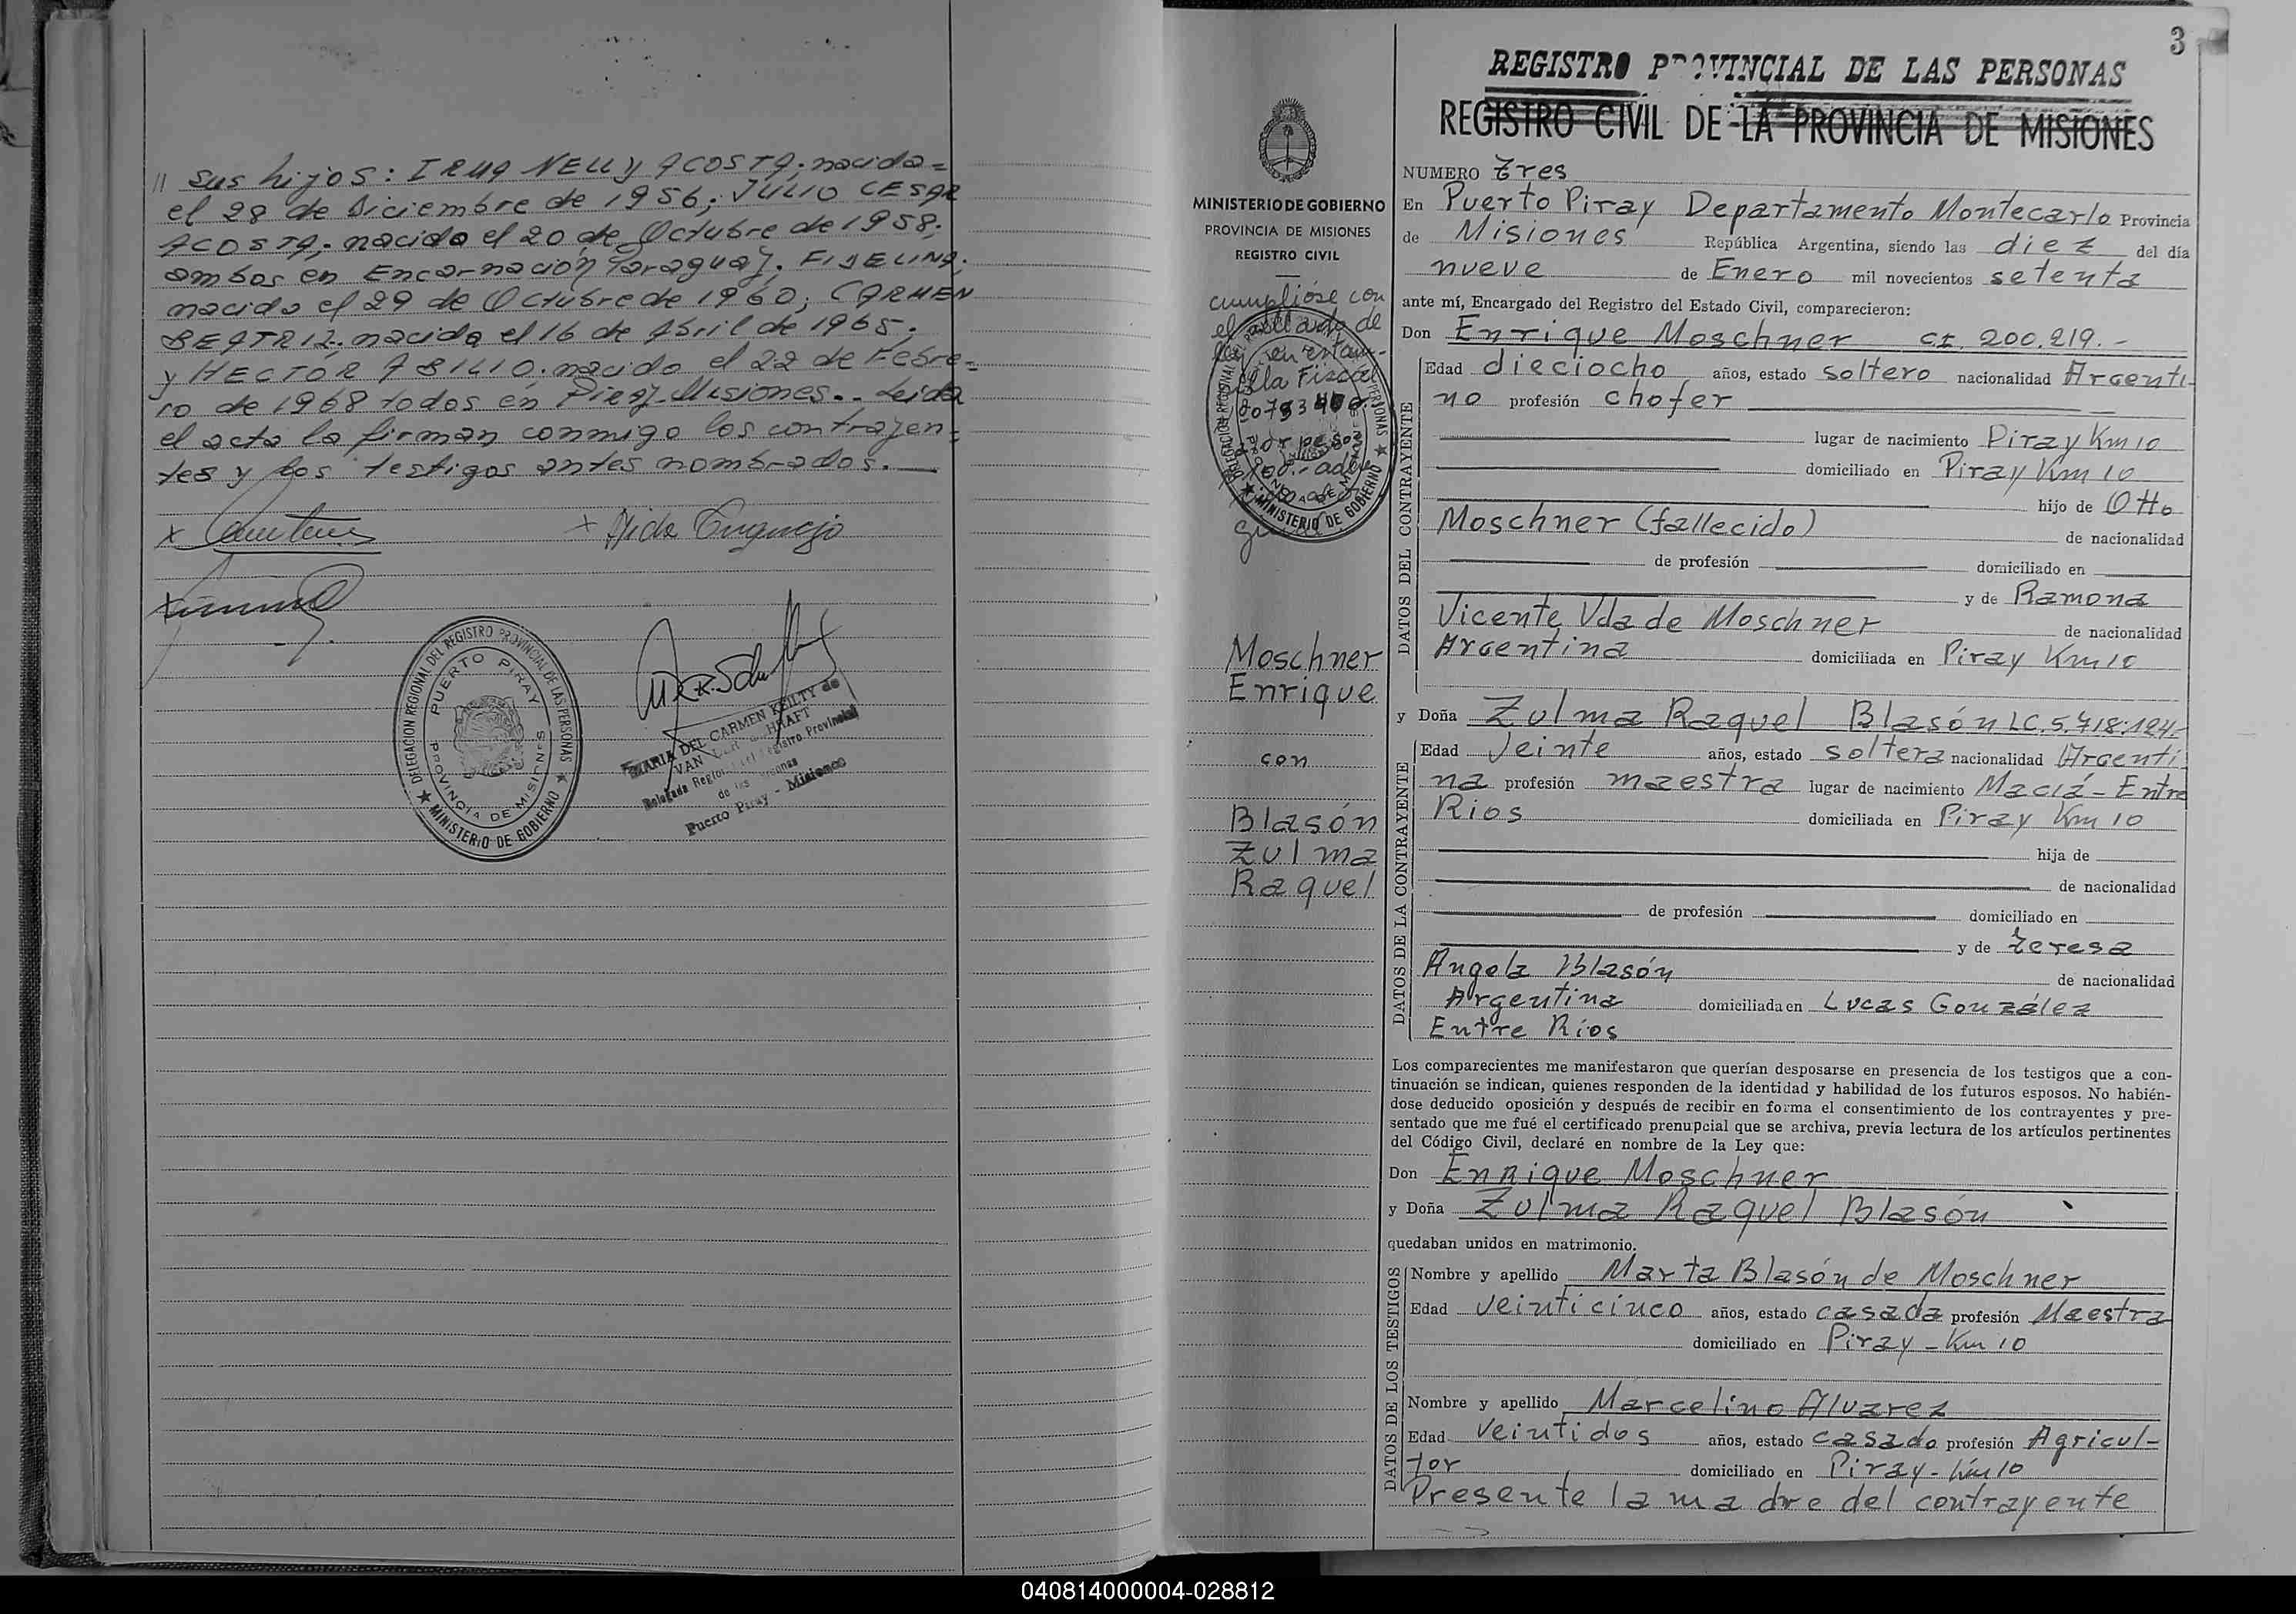 // sus hijos: IRMA NELLY ACOSTA, nacida =
el 28 de Diciembre de 1956; JULIO CESAR
ACOSTA, nacido el 20 de Octubre de 1958,
ambos en Encarnación Paraguay. FIDELINA,
nacida el 29 de Octubre de 1960; CARMEN
BEATRIZ, nacida el 16 de Abril de 1965,
y HECTOR ABILIO, nacido el 22 de Febre=
ro de 1968 todos en Piray-Misiones.- Leida
el acta la firman conmigo los contrayen=
tes y los testigos antes nombrados.
DELEGACION REGIONAL DEL REGISTRO PROVINCIAL DE LAS PERSONAS
PUERTO PIRAY
PROVINCIA DE MISIONES
MINISTERIO DE GOBIERNO
MARIA DEL CARMEN KEILTY de
VAN
Delegada Regional del Registro Provincial
de las Personas
Puerto Piray - Misiones
3
REGISTRO PROVINCIAL DE LAS PERSONAS
REGISTRO CIVIL DE LA PROVINCIA DE MISIONES
MINISTERIO DE GOBIERNO
PROVINCIA DE MISIONES
REGISTRO CIVIL
cumplióse con
el
de
ley en estam-
pilla Fiscal
por pesos
100.-
MINISTERIO DE GOBIERNO
Moschner
Enrique
con
Blasón
Zulma
Raquel
NUMERO Tres
En Puerto Piray Departamento Montecarlo Provincia
de Misiones República Argentina, siendo las diez del día
nueve de Enero mil novecientos setenta
ante mí, Encargado del Registro del Estado Civil, comparecieron:
Don Enrique Moschner CI. 200.219.-
DATOS DEL CONTRAYENTE
Edad dieciocho años, estado soltero nacionalidad Argenti-
no profesión chofer
lugar de nacimiento Piray Km 10
domiciliado en Piray Km 10
hijo de Otto
Moschner (fallecido) de nacionalidad
de profesión domiciliado en
y de Ramona
Vicente Vda de Moschner de nacionalidad
Argentina domiciliada en Piray Km 10
y Doña Zulma Raquel Blasón LC. 5.718.124.-
DATOS DE LA CONTRAYENTE
Edad Veinte años, estado soltera nacionalidad Argenti
na profesión maestra lugar de nacimiento Maciá - Entre
Rios domiciliada en Piray Km 10
hija de
de nacionalidad
de profesión domiciliado en
y de Teresa
Angela Blasón de nacionalidad
Argentina domiciliada en Lucas González
Entre Ríos
Los comparecientes me manifestaron que querían desposarse en presencia de los testigos que a con-
tinuación se indican, quienes responden de la identidad y habilidad de los futuros esposos. No habién-
dose deducido oposición y después de recibir en forma el consentimiento de los contrayentes y pre-
sentado que me fué el certificado prenupcial que se archiva, previa lectura de los artículos pertinentes
del Código Civil, declaré en nombre de la Ley que:
Don Enrique Moschner
y Doña Zulma Raquel Blasón
quedaban unidos en matrimonio.
DATOS DE LOS TESTIGOS
Nombre y apellido Marta Blasón de Moschner
Edad veinticinco años, estado casada profesión Maestra
domiciliado en Piray - Km 10
Nombre y apellido Marcelino Alvarez
Edad Veintidos años, estado casado profesión Agricul-
tor domiciliado en Piray - Km 10
Presente la madre del contrayente
040814000004-028812